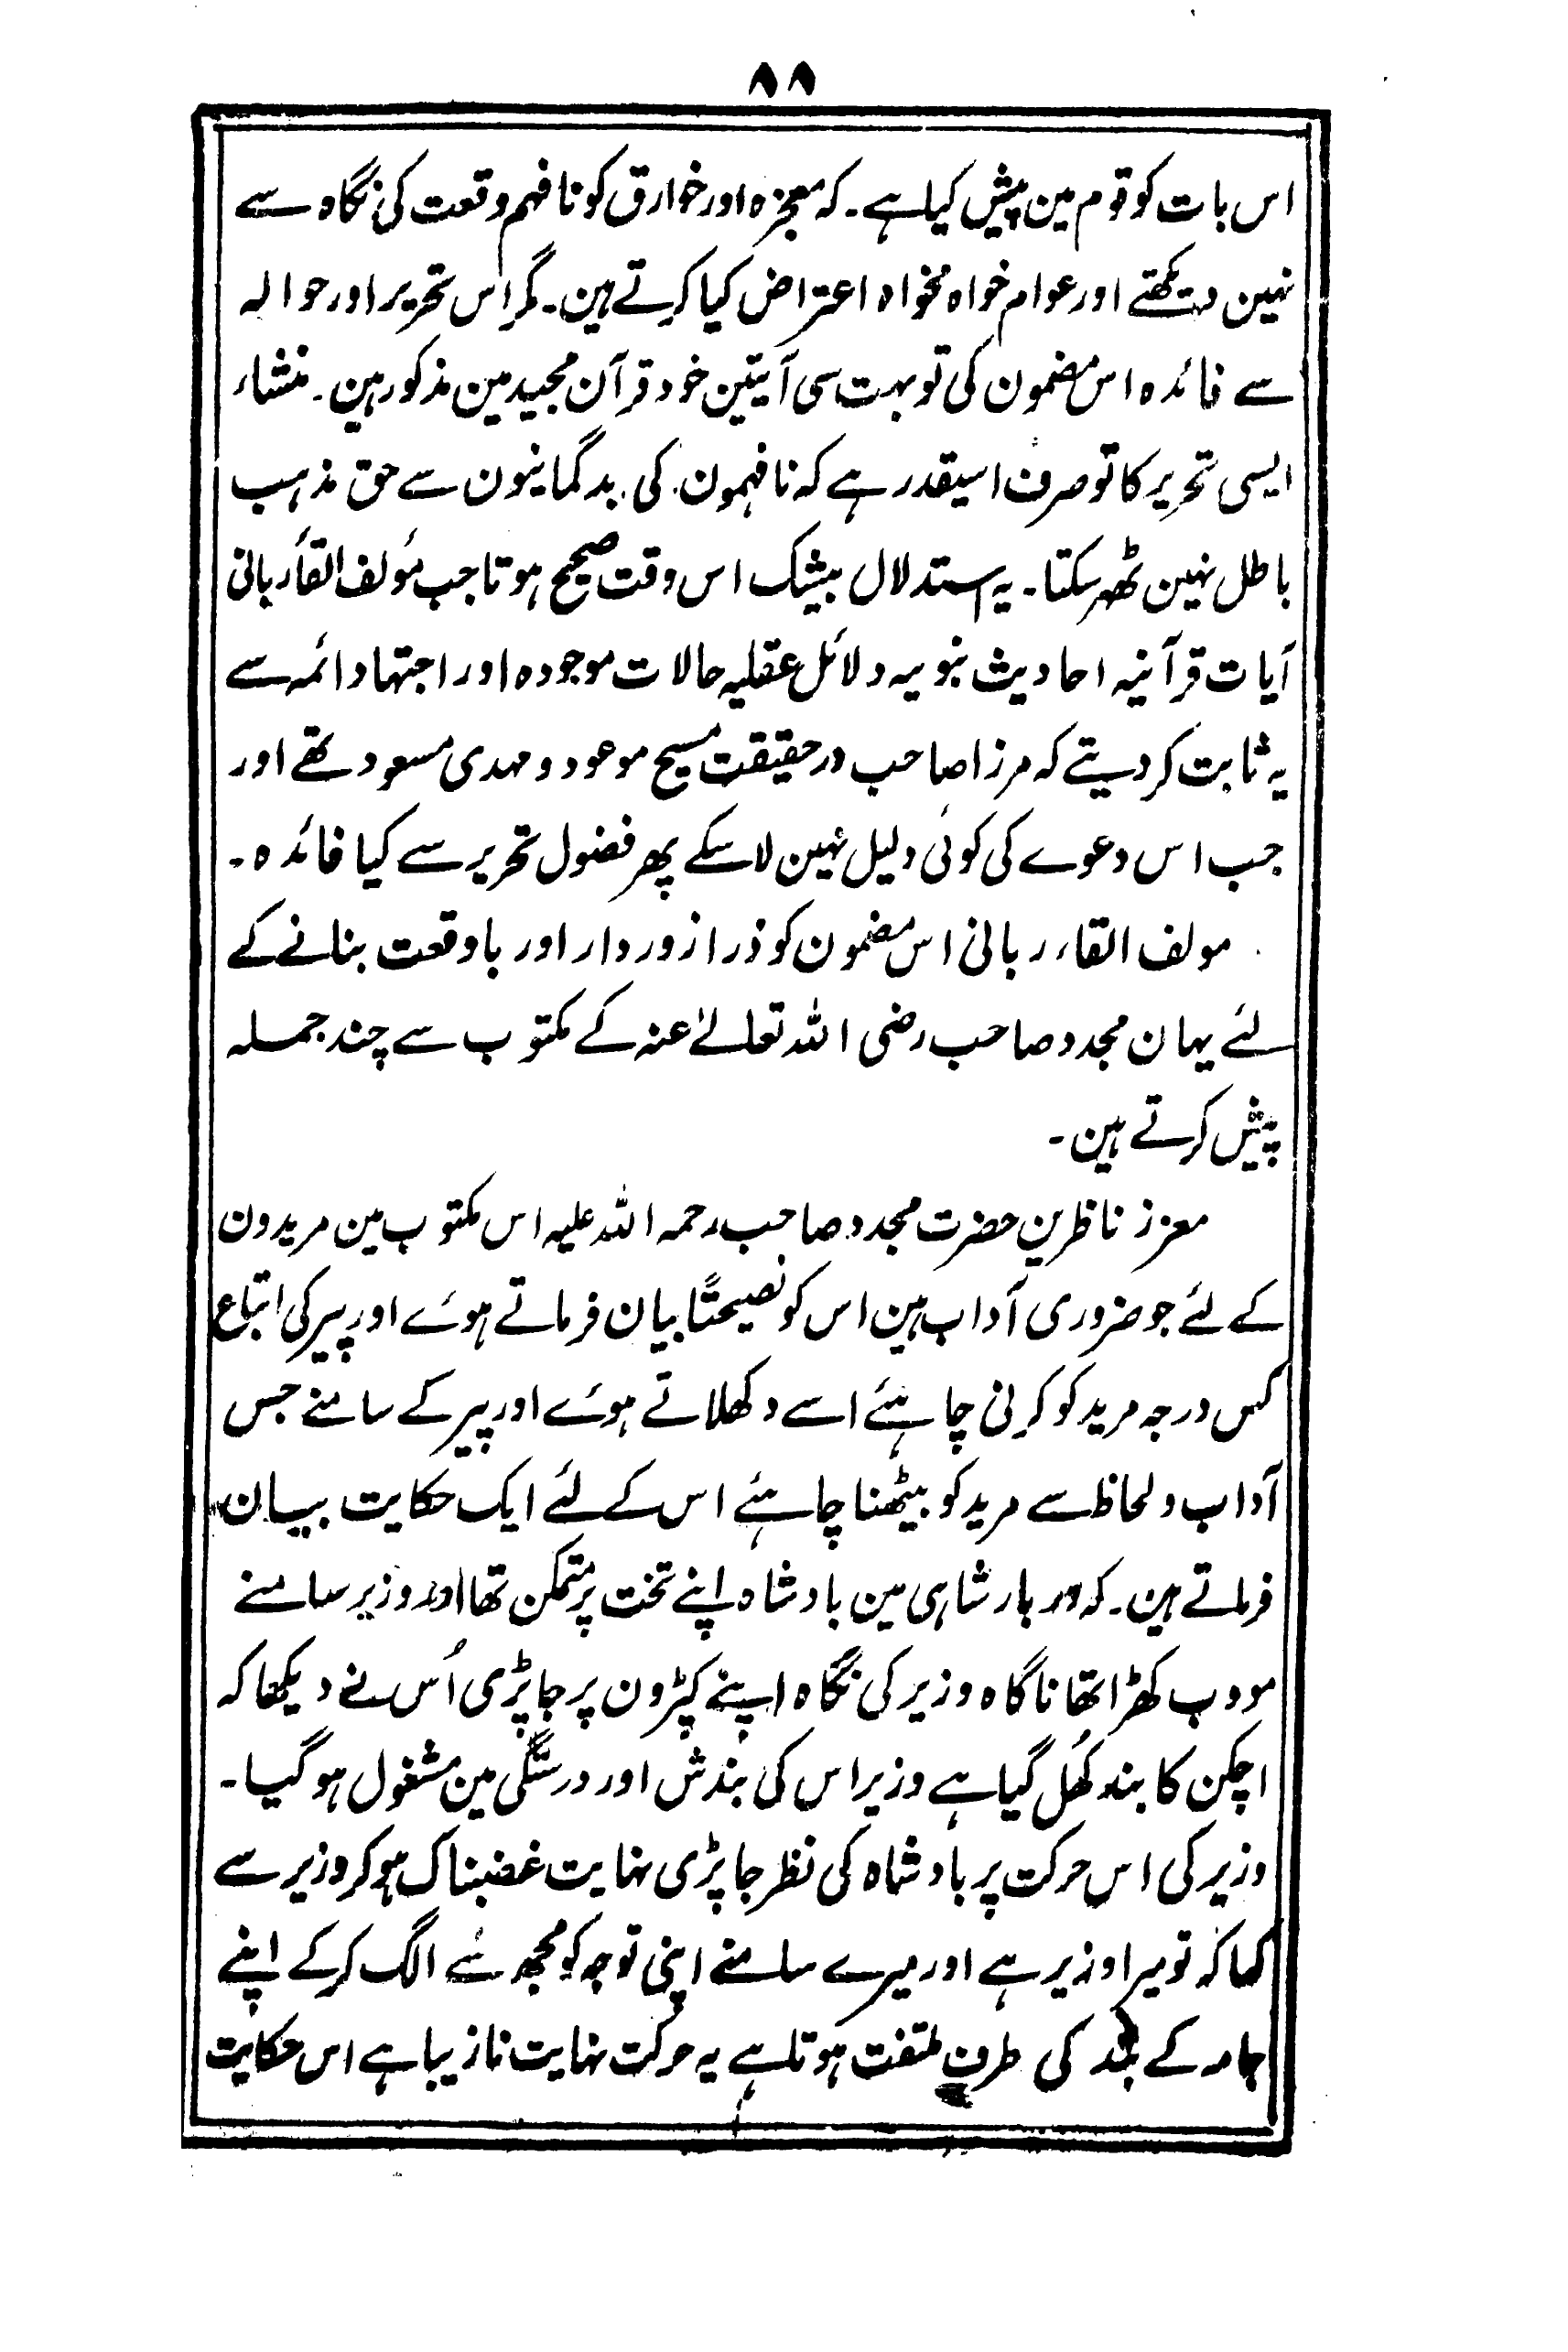 ۸۸
اس بات کو قوم مین پیش کیا ہے۔ کہ معجزہ اور خوارق کو نا فہم وقعت کی نگاہ سے
نہین دیکھتے اور عوام خواہ مخواہ اعتراض کیا کرتے ہین۔ مگر اس تحریر اور حوالہ
سے فائدہ اس مضمون کی تو بہت سی آیتین خود قرآن مجید مین مذکور ہین۔ منشاء
ایسی تحریر کا تو صرف اسیقدر ہے کہ نا فہمون کی بدگمانیون سے حق مذہب
باطل نہین ٹھہر سکتا۔ یہ استدلال بیشک اس وقت صحیح ہوتا جب مؤلف القاء ربانی
آیات قرآنیہ احادیث نبویہ دلائل عقلیہ حالات موجودہ اور اجتہاد ائمہ سے
یہ ثابت کر دیتے کہ مرزا صاحب در حقیقت مسیح موعود و مہدی مسعود تھے اور
جب اس دعوے کی کوئی دلیل نہین لا سکے پھر فضول تحریر سے کیا فائدہ۔
مولف القاء ربانی اس مضمون کو ذرا زوردار اور با وقعت بنانے کے
لئے یہان مجدد صاحب رضی اللہ تعالیٰ عنہ کے مکتوب سے چند جملہ
پیش کرتے ہین۔
معزز ناظرین حضرت مجدد صاحب رحمہ اللہ علیہ اس مکتوب مین مریدون
کے لئے جو ضروری آداب ہین اس کو نصیحتاً بیان فرماتے ہوئے اور پیر کی اتباع
کس درجہ مرید کو کرنی چاہئے اسے دکھلاتے ہوئے اور پیر کے سامنے جس
آداب و لحاظ سے مرید کو بیٹھنا چاہئے اس کے لئے ایک حکایت بیان
فرماتے ہین۔ کہ دربار شاہی مین بادشاہ اپنے تخت پر متمکن تھا اور وزیر سامنے
مودب کھڑا تھا ناگاہ وزیر کی نگاہ اپنے کپڑون پر جا پڑی اُس نے دیکھا کہ
اچکن کا بند کھُل گیا ہے وزیر اس کی بندش اور درستگی مین مشغول ہو گیا۔
وزیر کی اس حرکت پر بادشاہ کی نظر جا پڑی نہایت غضبناک ہو کر وزیر سے
کہا کہ تو میرا وزیر ہے اور میرے سامنے اپنی توجہ کو مجھ سے الگ کر کے اپنے
جامہ کے بند کی طرف ملتفت ہوتا ہے یہ حرکت نہایت نازیبا ہے اس حکایت